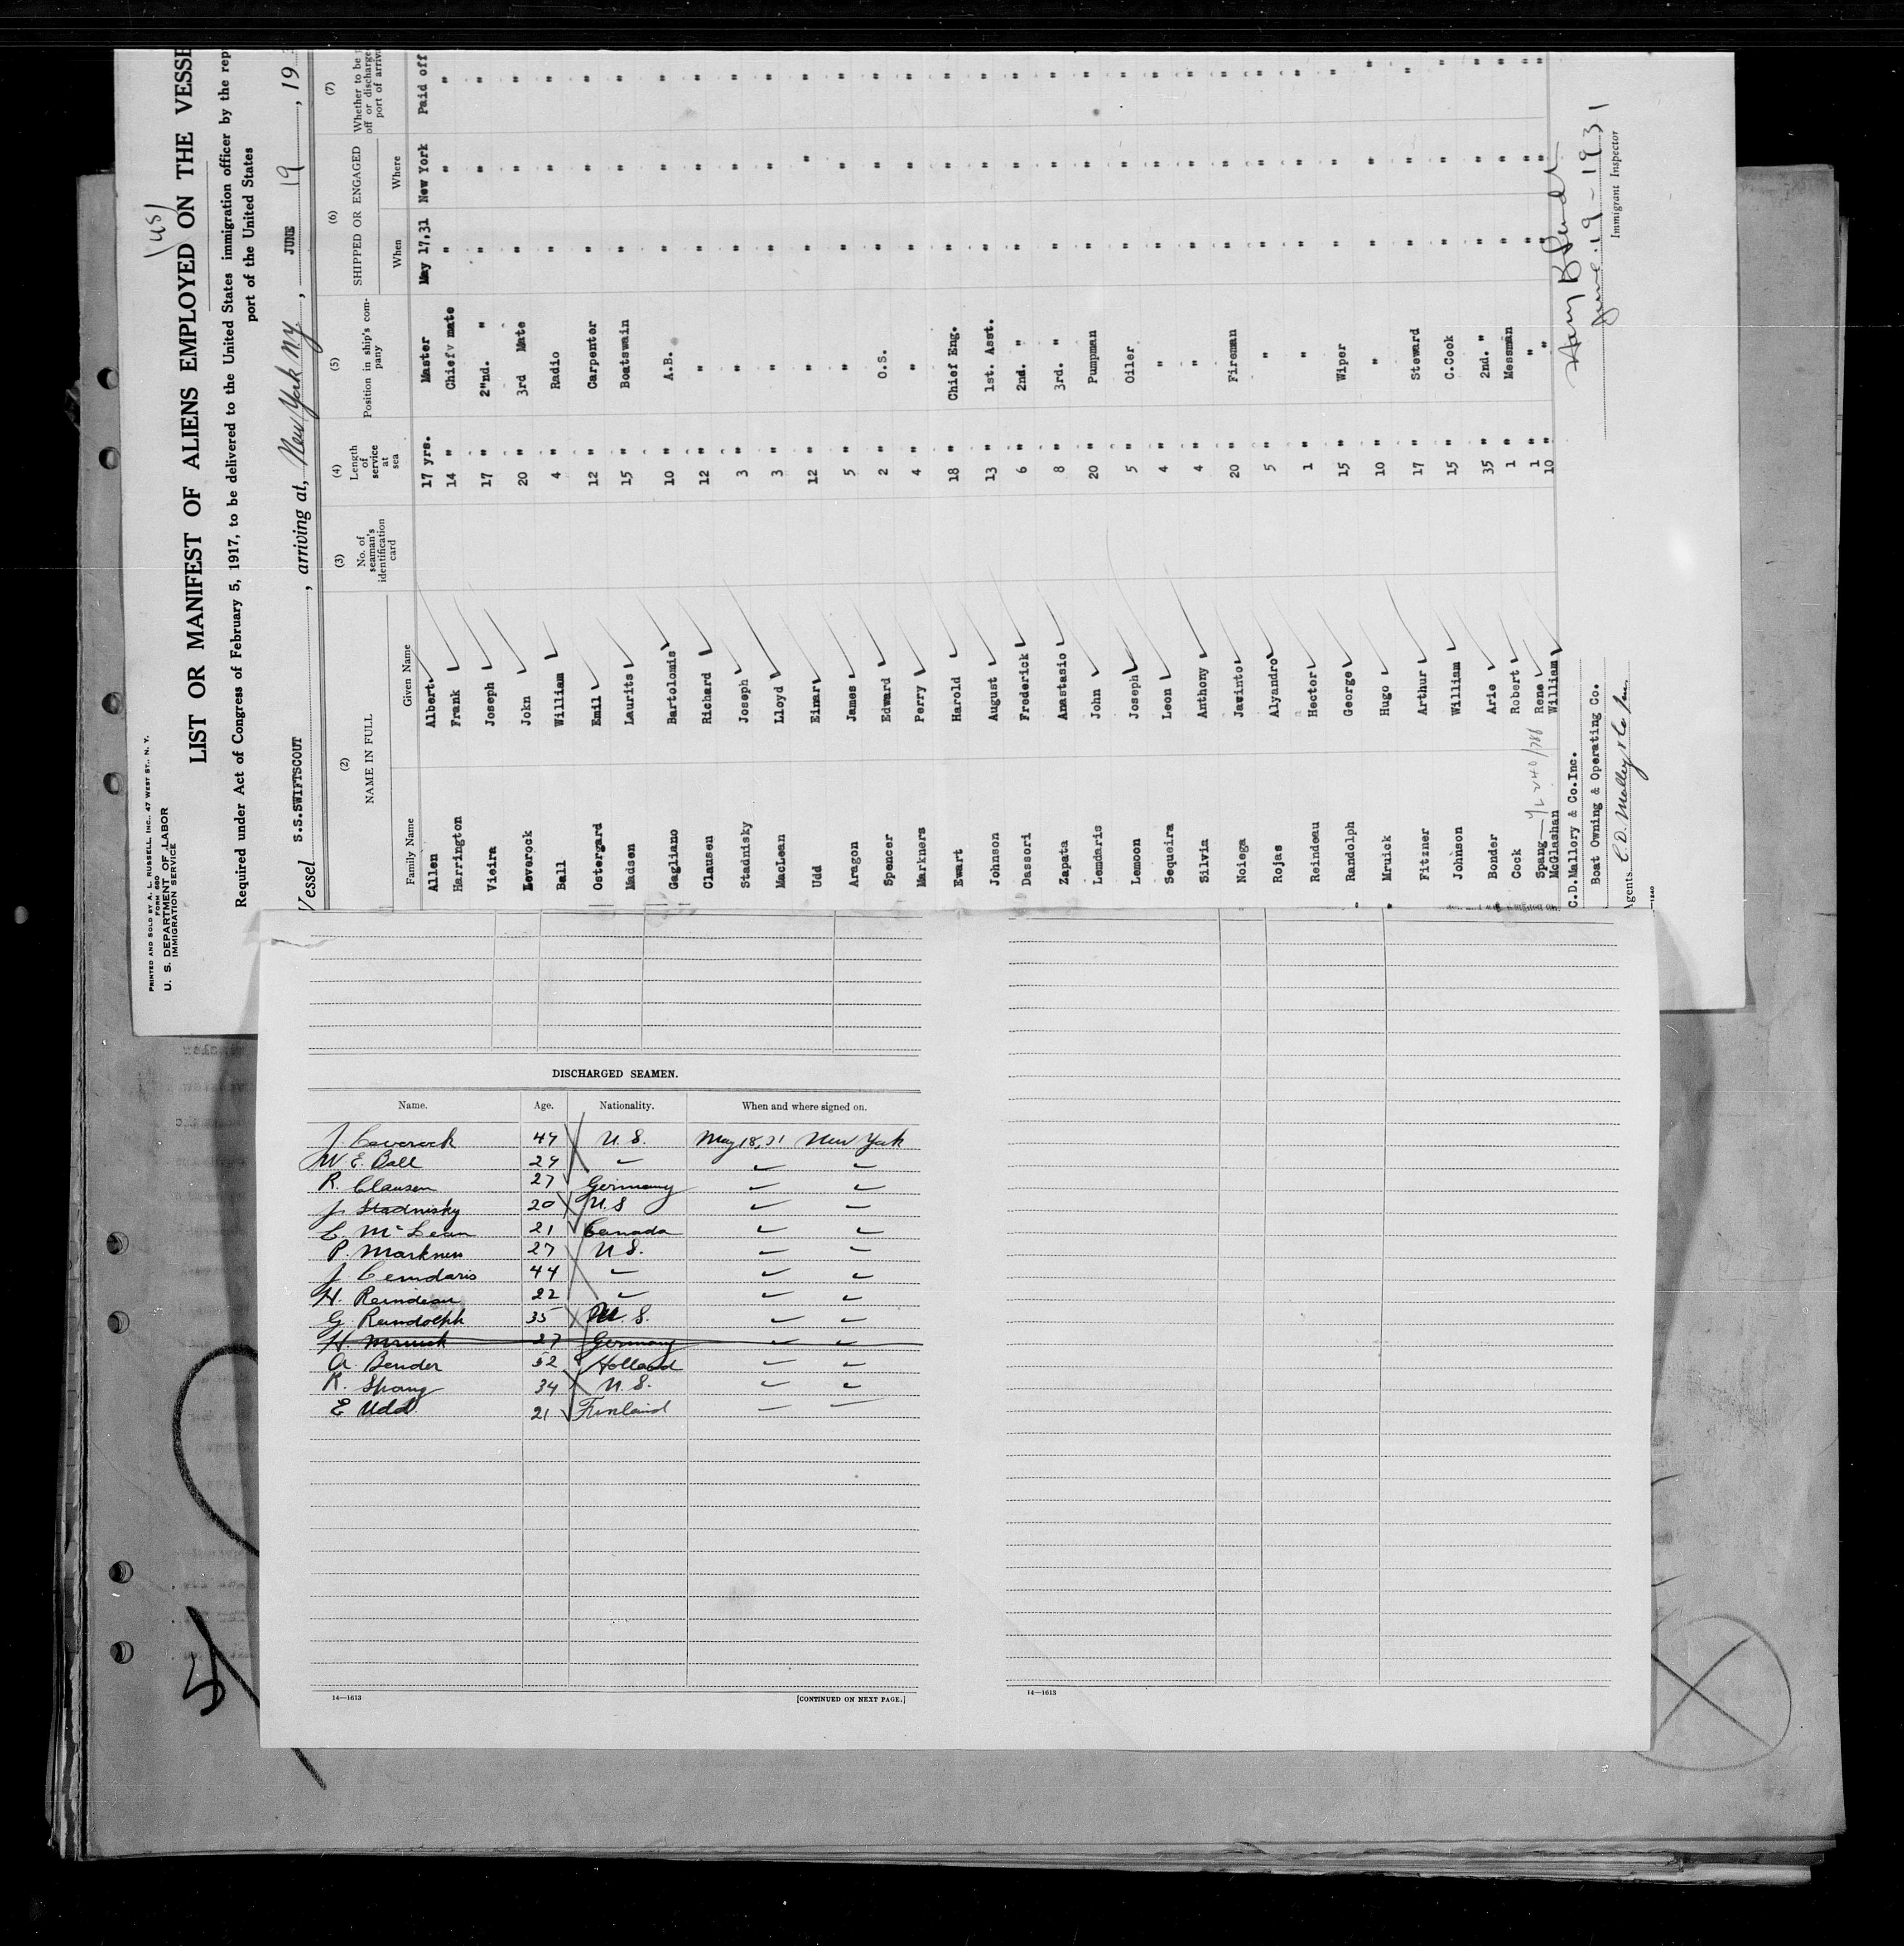 PRINTED AND SOLD BY A. L. RUSSELL, INC., 47 WEST ST., N. Y.
FORM 680
U. S. DEPARTMENT OF LABOR
IMMIGRATION SERVICE
(us)
LIST OR MANIFEST OF ALIENS EMPLOYED ON THE VESSE
Required under Act of Congress of February 5, 1917, to be delivered to the United States immigration officer by the rep
port of the United States
Vessel S.S.SWIFTSCOUT, arriving at, New York N.Y., JUNE 19, 19
(2) (3) (4) (5) (6) (7)
NAME IN FULL No. of seaman's identification card Length of service at sea Position in ship's company SHIPPED OR ENGAGED Whether to be off or discharge port of arriv
Family Name Given Name When Where
Allen Albert 17 yrs. Master May 17,31 New York Paid off
Harrington Frank 14 " Chief mate " " "
Vieira Joseph 17 " 2"nd. " " " "
Leverock John 20 " 3rd Mate " " "
Ball William 4 " Radio " " "
Ostergard Emil 12 " Carpenter " " "
Madsen Laurits 15 " Boatswain " " "
Gagliano Bartolomis 10 " A.B. " " "
Clausen Richard 12 " " " " "
Stadnisky Joseph 3 " " " " "
MacLean Lloyd 3 " " " " "
Udd Einar 12 " " " " "
Aragon James 5 " " " " "
Spencer Edward 2 " O.S. " " "
Markners Perry 4 " " " " "
Ewart Harold 18 " Chief Eng. " " "
Johnson August 13 " 1st. Asst. " " "
Dassori Frederick 6 " 2nd. " " " "
Zapata Anastasio 8 " 3rd. " " " "
Lemdaris John 20 " Pumpman " " "
Lemoon Joseph 5 " Oiler " " "
Sequeira Leon 4 " " " " "
Silvia Anthony 4 " " " " "
Noiega Jawinto 20 " Fireman " " "
Rojas Alyandro 5 " " " " "
Reindeau Hector 1 " " " " "
Randolph George 15 " Wiper " " "
Mruick Hugo 10 " " " " "
Fitzner Arthur 17 " Steward " " "
Johnson William 15 " C.Cook " " "
Bonder Arie 35 " 2nd. " " " "
Cock Robert 1 " Messman " " "
Spang Rene 1 " " " " "
McGlashan William 10 " " " " "
C.D.Mallory & Co.Inc.
Boat Owning & Operating Co.
Agents C.D. Mallory & Co Inc.
June 19 - 1931
Immigrant Inspector
DISCHARGED SEAMEN.
Name. Age. Nationality. When and where signed on.
J. Leverock 49 U.S. May 18, 31 New York
W. E. Ball 29
R. Clausen 27 Germany
J. Stadnisky 20 U.S
L. McLean 21 Canada
P. Markners 27 U.S.
J. Lemdaris 44
H. Reindeau 22
G. Randolph 35 U.S.
H. Mruick 27 Germany
A. Bender 52 Holland
R. Spang 34 U.S.
E Udd 21 Finland
14—1613 [CONTINUED ON NEXT PAGE.]
14—1613
5